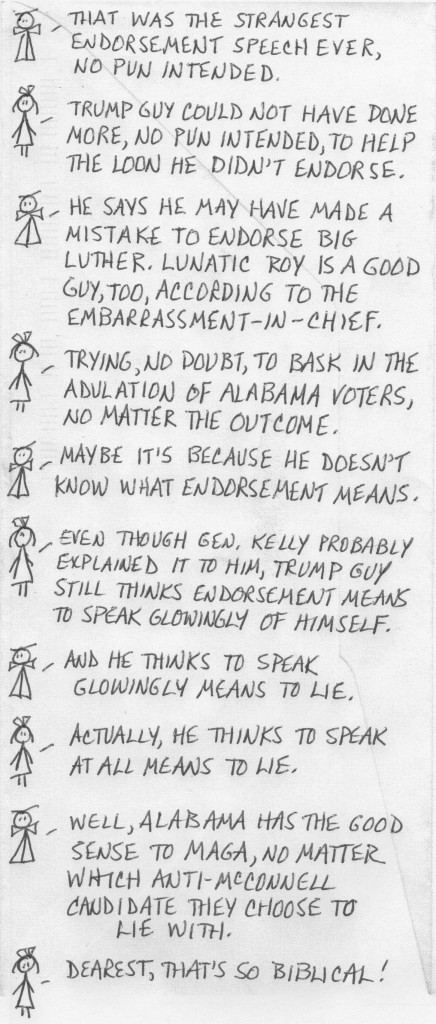 THAT WAS THE STRANGEST
ENDORSEMENT SPEECH EVER,
NO PUN INTENDED.
TRUMP GUY COULD NOT HAVE DONE
MORE, NO PUN INTENDED, TO HELP
THE LOON HE DIDN'T ENDORSE.
HE SAYS HE MAY HAVE MADE A
MISTAKE TO ENDORSE BIG
LUTHER. LUNATIC ROY IS A GOOD
GUY, TOO, ACCORDING TO THE
EMBARRASSMENT-IN-CHIEF.
TRYING, NO DOUBT, TO BASK IN THE
ADULATION OF ALABAMA VOTERS,
NO MATTER THE OUTCOME.
MAYBE IT'S BECAUSE HE DOESN'T
KNOW WHAT ENDORSEMENT MEANS.
EVEN THOUGH GEN. KELLY PROBABLY
EXPLAINED IT TO HIM, TRUMP GUY
STILL THINKS ENDORSEMENT MEANS
TO SPEAK GLOWINGLY OF HIMSELF.
AND HE THINKS TO SPEAK
GLOWINGLY MEANS TO LIE.
ACTUALLY, HE THINKS TO SPEAK
AT ALL MEANS TO LIE.
WELL, ALABAMA HAS THE GOOD
SENSE TO MAGA, NO MATTER
WHICH ANTI-McCONNELL
CANDIDATE THEY CHOOSE TO
LIE WITH.
DEAREST, THAT'S SO BIBLICAL!